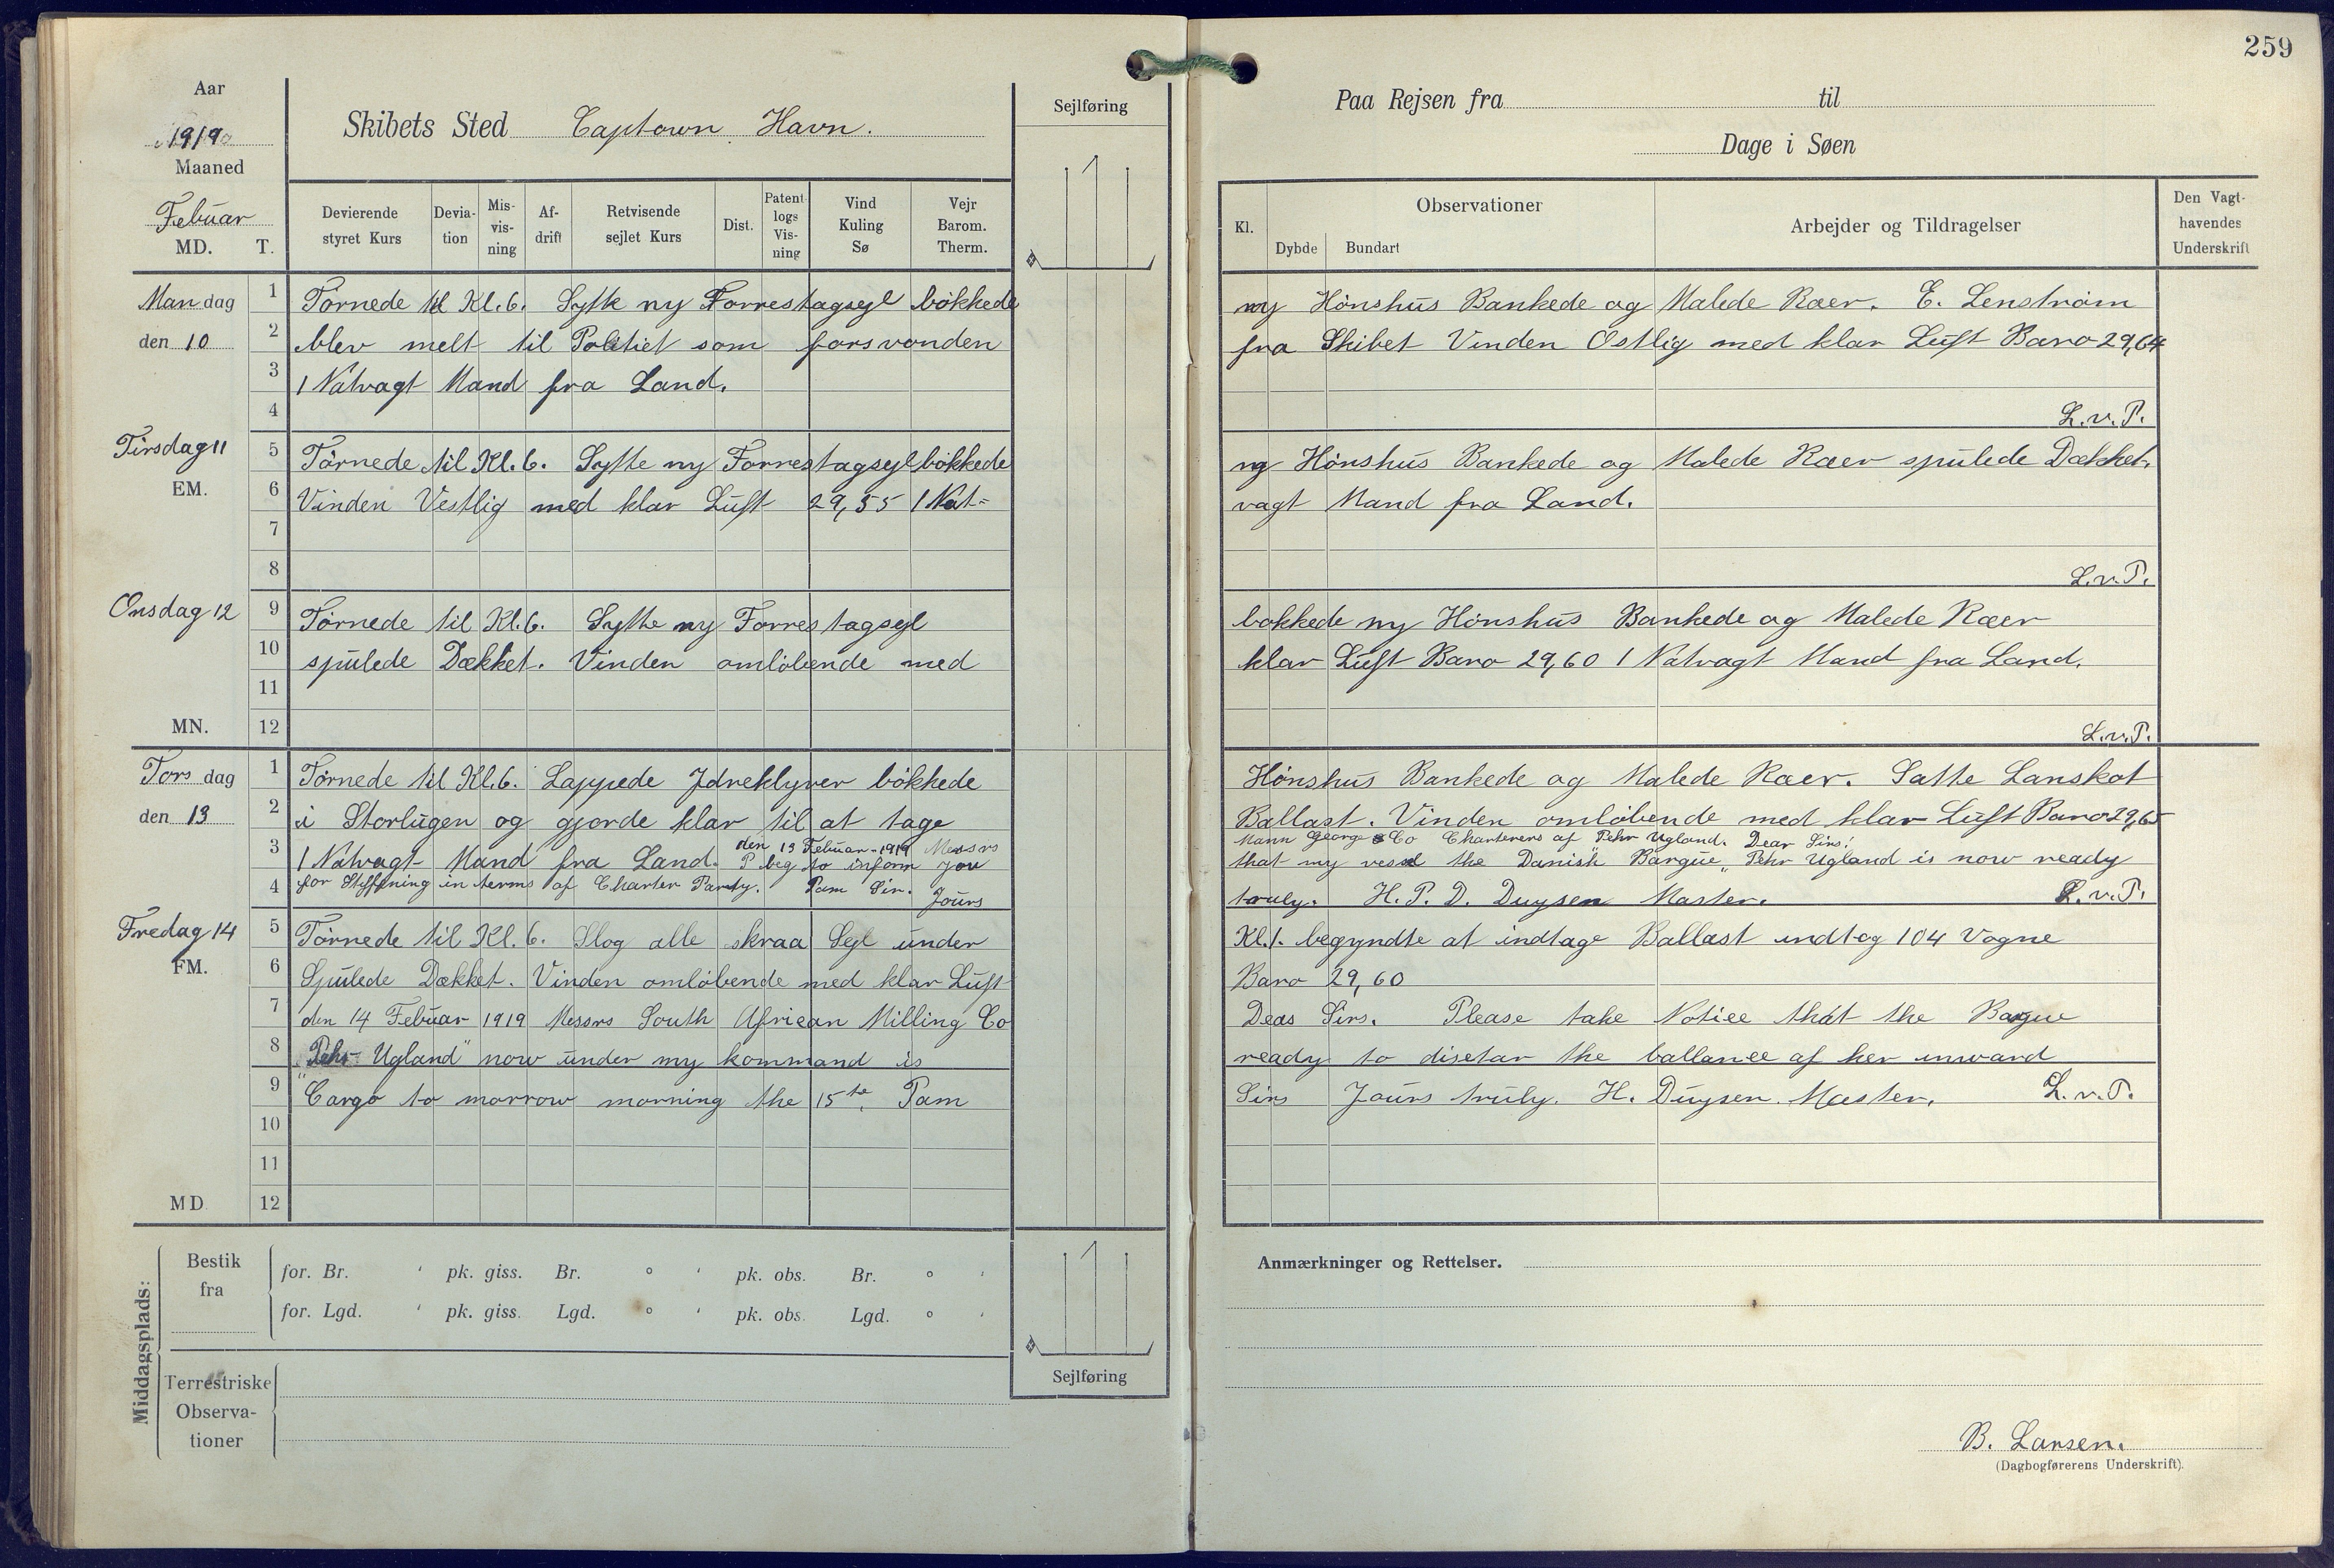 259
Aar
1919
Maaned
Febuar
MD. T.
Skibets Sted Captown Havn.
Sejlføring
Paa Rejsen fra til
Dage i Søen
Devierende styret Kurs
Devia-tion
Mis-vis-ning
Af-drift
Retvisende sejlet Kurs
Dist.
Patent logs Vis-ning
Vind Kuling Sø
Vejr Barom. Therm.
Kl.
Observationer
Dybde Bundart
Arbejder og Tildragelser
Den Vagt-havendes Underskrift
Mandag den 10
1 Tørnede til Kl. 6. Sytte ny Forrestagsegl bökkede ny Hönshus Bankede og Malede Raer. E. Lenstrøm
2 blev melt til Politiet som forsvonden fra Skibet Vinden Ostlig med klar Luft Baro 29,64
3 1 Natvagt Mand fra Land.
4 L.v.P.
Tirsdag 11
EM.
5 Törnede til Kl. 6. Sytte ny Forrestagsegl bökkede ny Hönshus Bankede og Malede Raer spulede Dækket.
6 Vinden Vestlig med klar Luft 29,55 1 Nat= vagt Mand fra Land.
7
8 L.v.P.
Onsdag 12
9 Törnede til Kl. 6. Sytte ny Forrestagsegl bokkede ny Hönshus Bankede og Malede Raer
10 spulede Dækket. Vinden omlöbende med klar Luft Baro 29,60 1 Natvagt Mand fra Land.
11
MN. 12 L.v.P.
Torsdag den 13
1 Törnede til Kl. 6. Lappede Jdreklyver bökkede Hönshus Bankede og Malede Raer. Satte Lanskot
2 i Storlugen og gjorde klar til at tage Ballast. Vinden omlöbende med klar Luft Baro 29,65
den 13 Febuar - 1919 Messrs Mann George & Co Charterers af Pehr Ugland. Dear Sirs!
3 1 Natvagt Mand fra Land. P beg to inform you that my vessel the Danish Bargue „Pehr Ugland is now ready
4 for Stiffning in terms af Charter Party. Pam Sir. Jours truly. H. P. D. Duysen Master. L.v.P.
Fredag 14
FM.
5 Törnede til Kl. 6. Slog alle skraa Segl under Kl. 1. begyndte at indtage Ballast indtog 104 Vogne
6 Spulede Dækket. Vinden omlöbende med klar Luft Baro 29,60
7 den 14 Febuar 1919 Messrs South Afriean Milling Co Deas Sirs. Please take Notiee that the Bargue
8 „Pehr Ugland" now under my kommand is ready to disetar the ballanee af her inward
9 Cargo to morrow morning the 15te. Pam Sirs Jours truly. H. Duysen. Master. L.v.P.
10
11
MD 12
Middagsplads:
Bestik fra
for. Br. ' pk. giss. Br. ° ' pk. obs. Br. ° '
for. Lgd. ' pk. giss. Lgd. ° ' pk. obs. Lgd. ° '
Terrestriske Observa-tioner
Sejlføring
Anmærkninger og Rettelser.
B. Larsen.
(Dagbogførerens Underskrift).